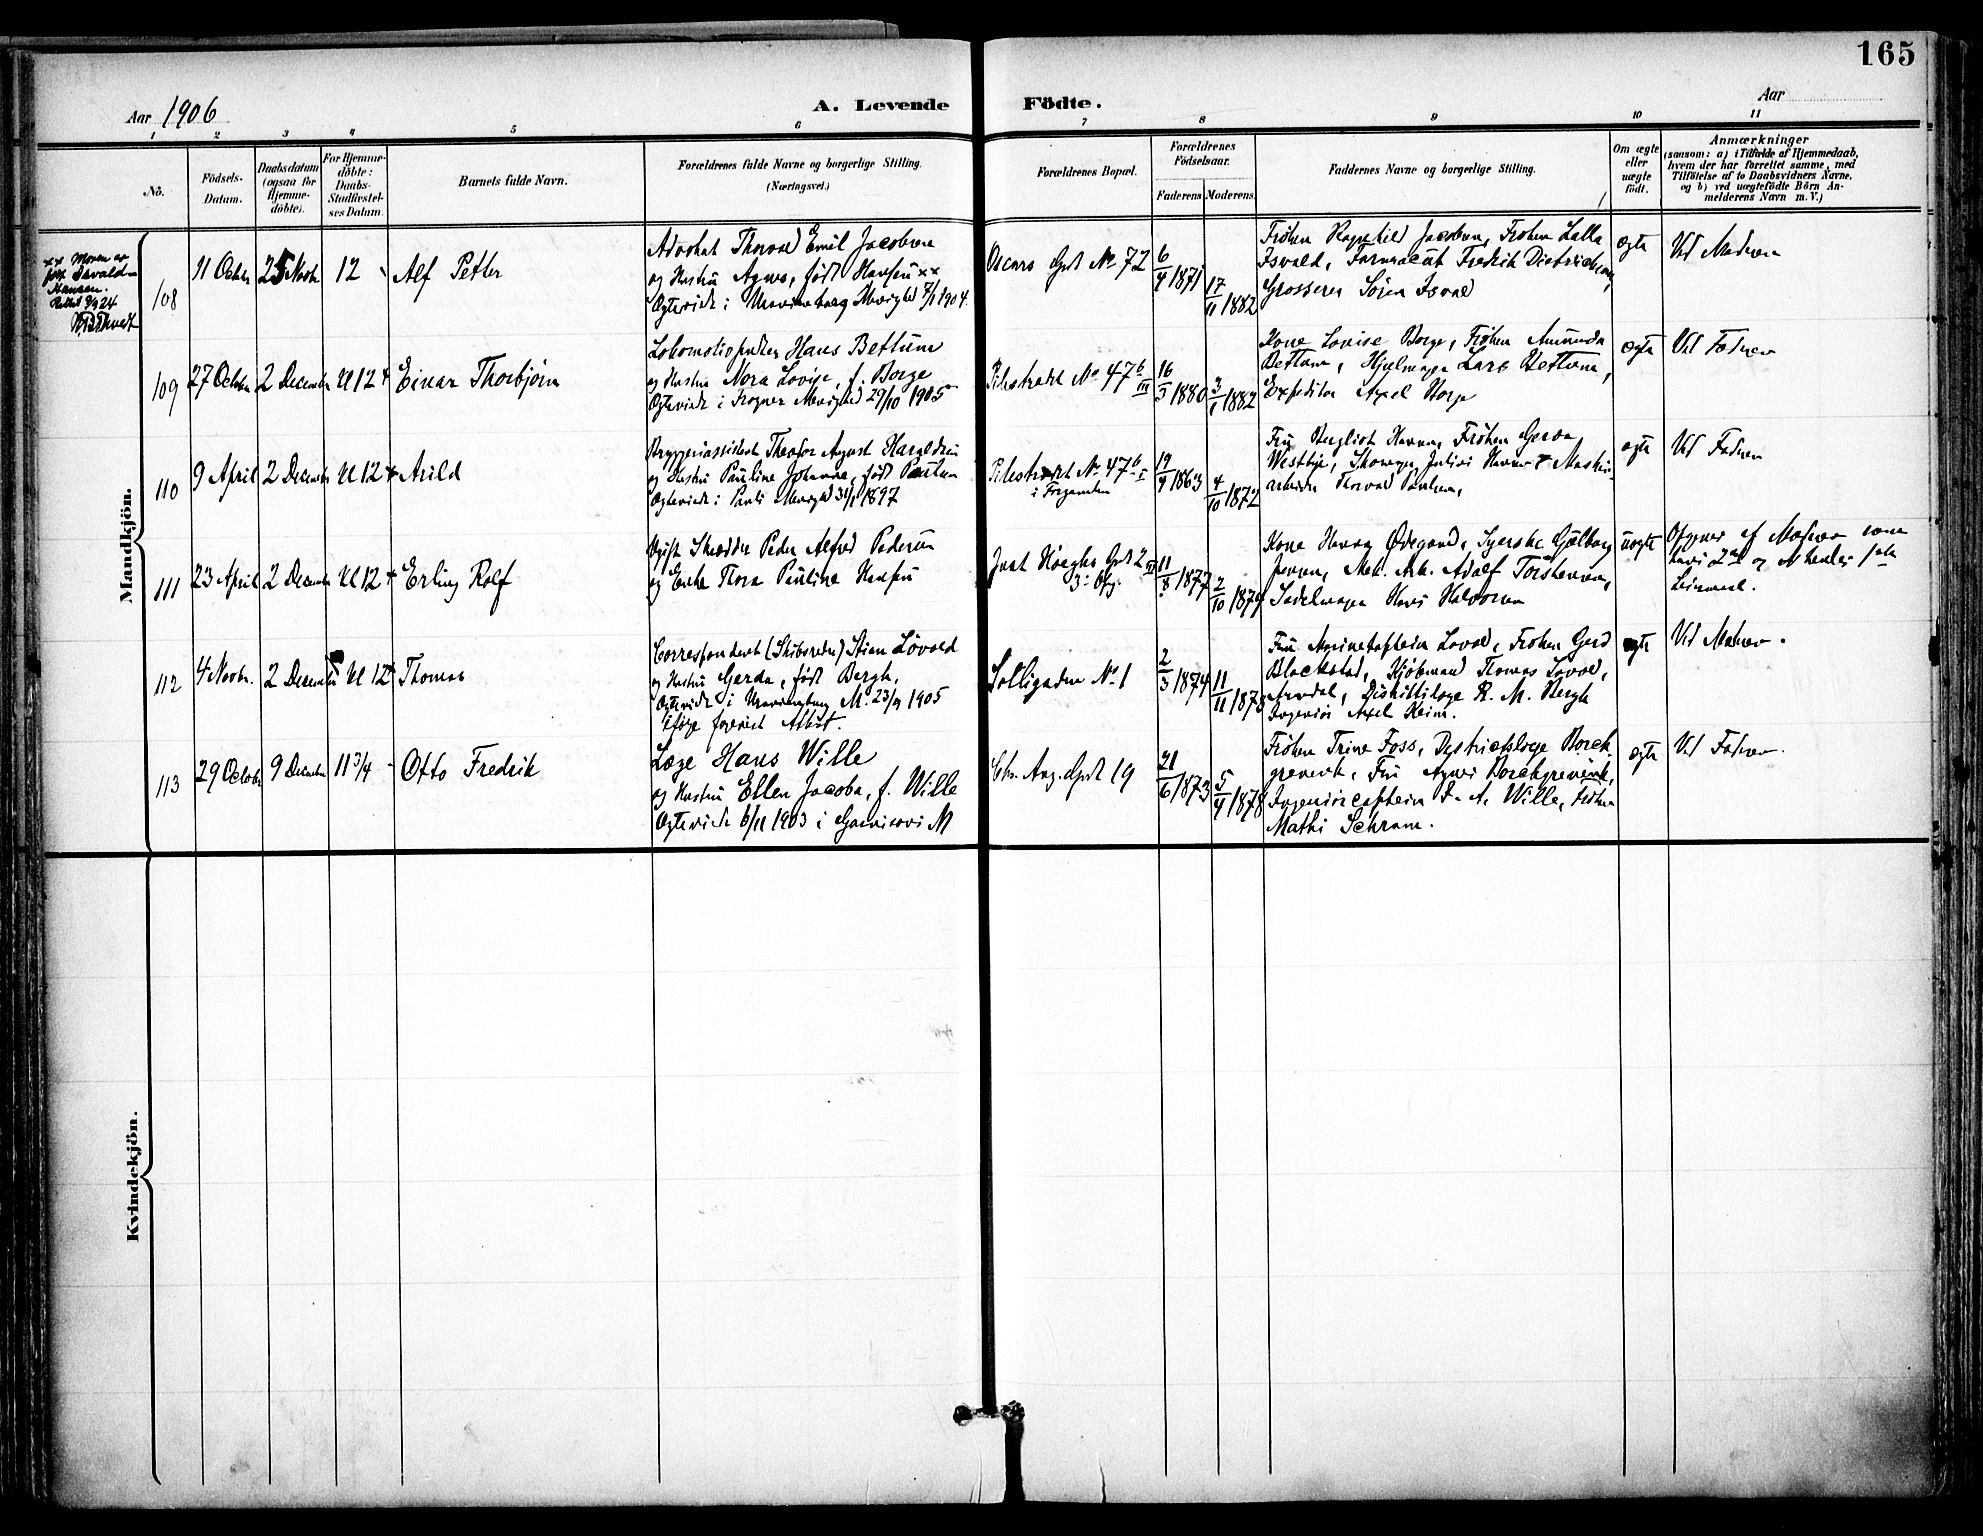 165
Aar 1906
A. Levende Födte.
Aar
1 2 3 4 5 6 7 8 9 10 11
No.
Födsels-
Datum.
Daabsdatum
(ogsaa for
Hjemme-
döbte).
For Hjemme-
döbte:
Daabs-
Stadfæstel-
ses Datum.
Barnets fulde Navn.
Forældrenes fulde Navne og borgerlige Stilling.
(Næringsvei.)
Forældrenes Bopæl.
Forældrenes
Födselsaar.
Faderens Moderens
Faddernes Navne og borgerlige Stilling.
Om ægte
eller
uægte
födt.
Anmærkninger
(saasom: a) i Tilfælde af Hjemmedaab,
hvem der har forrettet samme, med
Tilföielse af to Daabsvidners Navne,
og b) ved uægtefödte Börn An-
melderens Navn m. V.)
Mandkjön.
xx Moren er
født Isvald
Hansen.
108
11 Octobr
25 Novbr
12
Alf Petter
Advokat Thorvald Emil Jacobsen
og Hustru Agnes, født Hansen xx
Ægteviede i Uranienborg Menighed 7/1 1904.
Oscars Gade No 72
6/4 1871
17/11 1882
Frøken Ragnhild Jacobsen, Frøken Lalla
Isvald, Farmaceut Fredrik Dietrichson,
Grosserer Sören Isvald
ægte
Ved Moderen
109
27 Octobr
2 December
Kl 12
Einar Thorbjörn
Lokomotivpudser Hans Bettum
og Hustru Nora Lovise, f. Borge
Ægteviede i Frogner Menighed 29/10 1905
Pilestrædet No 47 b III
16/5 1880
3/1 1882
Kone Lovise Borge, Frøken Amunda
Bettum, Hjulmager Lars Bettum,
Expeditör Axel Borge
ægte
Ved Faderen
110
9 April
2 December
Kl 12
Arild
Bryggeriassistent Theodor August Haraldsen
og Hustru Pauline Johanne, født Paulsen
Ægteviede i Pauli Menighed 31/1 1897
Pilestrædet No 47 b I
i Forgaarden
19/9 1863
4/10 1872
Fru Bergliot Hansen, Frøken Gerda
Westbye, Skomager Julius Hansen, Maskin-
arbeider Thorvald Paulsen,
ægte
Ved Faderen
111
23 April
2 December
Kl 12
Erling Rolf
Ugift Skrædder Peder Alfred Pedersen
og Enke Thora Pauline Hansen
Just Høeghs Gade 2 II
3: Opg.
11/8 1877
2/10 1874
Kone Hanna Ødegaard, Syerske Gjölborg
Jensen, Mek. Arb. Adolf Torstensen,
Sadelmager Hans Halvorsen
uægte
Opgivet af Moderen som
hans 2det og Mandens 1ste
Leiermaal.
112
4 Novbr.
2 December
Kl 12
Thomas
Correspondent (Skibsreder) Stian Lövold
og Hustru Gerda, født Bergh.
Ægteviede i Uranienborg M. 23/9 1905
ifölge forevist Attest.
Solligaden No 1
2/3 1874
11/11 1878
Fru Marinekaptein Lovold, Frøken Gerd
Blackstad, Kjöbmand Thomas Lovold,
Arendal, Distriktslæge R. M. Bergh
Ingeniör Axel Heim.
ægte
Ved Moderen.
113
29 Octobr
9 December
11 3/4
Otto Fredrik
Læge Hans Wille
og Hustru Ellen Jacoba, f. Wille
Ægteviede 6/11 1903 i Garnisons M
Chr. Aug. Gade 19
21/6 1873
5/4 1878
Frøken Trine Foss, Distriktslæge Borch
grevink, Fru Agnes Borchgrevink,
Ingeniörcaptein F. A. Wille, Frøken
Mathi Schram.
ægte
Ved Faderen.
Kvindekjön.